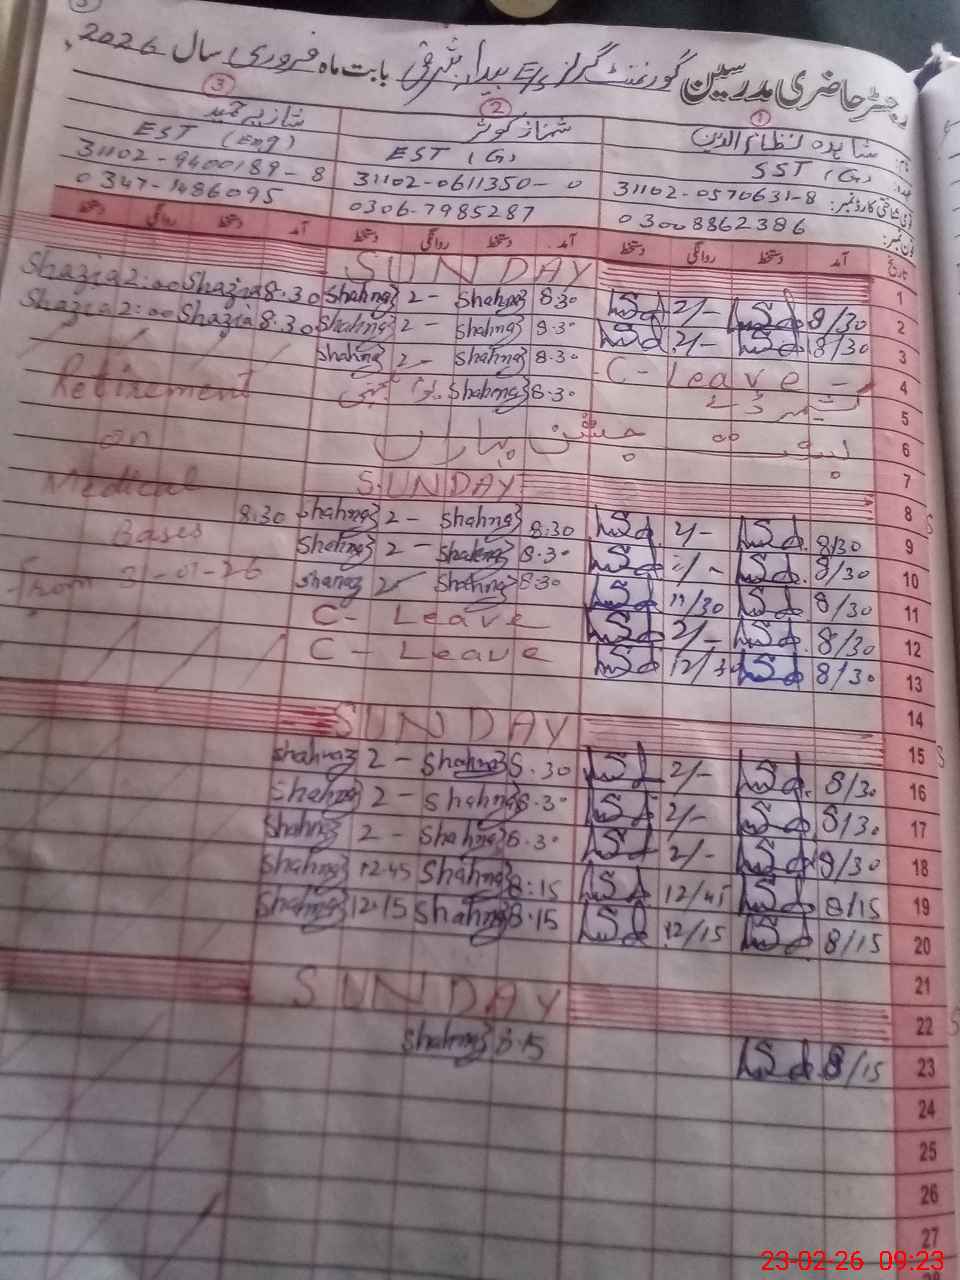 رجسٹر حاضری مدرسین گورنمنٹ گرلز E/S بیدار شرقی بابت ماہ فروری سال 2026
① ② ③
نام: شاہدہ نظام الدین شہناز کوثر شازیہ
عہدہ: SST (G) EST (G) EST (Eng)
قومی شناختی کارڈ نمبر: 31102-0570631-8 31102-0611350-0 31102-9400189-8
فون نمبر: 03008862386 0306-7985287 0347-1486095
تاریخ آمد دستخط روانگی دستخط آمد دستخط روانگی دستخط آمد دستخط روانگی دستخط
1 SUNDAY
2 8/30 2/- 8.30 Shahnaz 2- Shahnaz 8.30 Shazia 2:00 Shazia
3 8/30 2/- 8.30 Shahnaz 2- Shahnaz 8.30 Shazia 2:00 Shazia
4 C-Leave 8.30 Shahnaz 2- Shahnaz
5 8.30 Shahnaz
Retirement
6 بسنت جشن بہاراں
on
7
8 SUNDAY
Medical
9 8/30 2/- 8.30 Shahnaz 2- Shahnaz 8:30
Bases
10 8/30 8.30 Shahnaz 2- Shahnaz
From 31-01-26
11 8/30 11/30 8.30 Shahnaz 2 Shahnaz
12 8/30 2/- C-Leave
13 8/30 12/30 C-Leave
14
15 SUNDAY
16 8/30 2/- 8.30 Shahnaz 2- Shahnaz
17 8/30 2/- 8.30 Shahnaz 2- Shahnaz
18 8/30 2/- 8.30 Shahnaz 2- Shahnaz
19 8/15 12/45 8:15 Shahnaz 12.45 Shahnaz
20 8/15 12/15 8.15 Shahnaz 12.15 Shahnaz
21
22 SUNDAY
23 8/15 8.15 Shahnaz
24
25
26
27
23-02-26 09:23